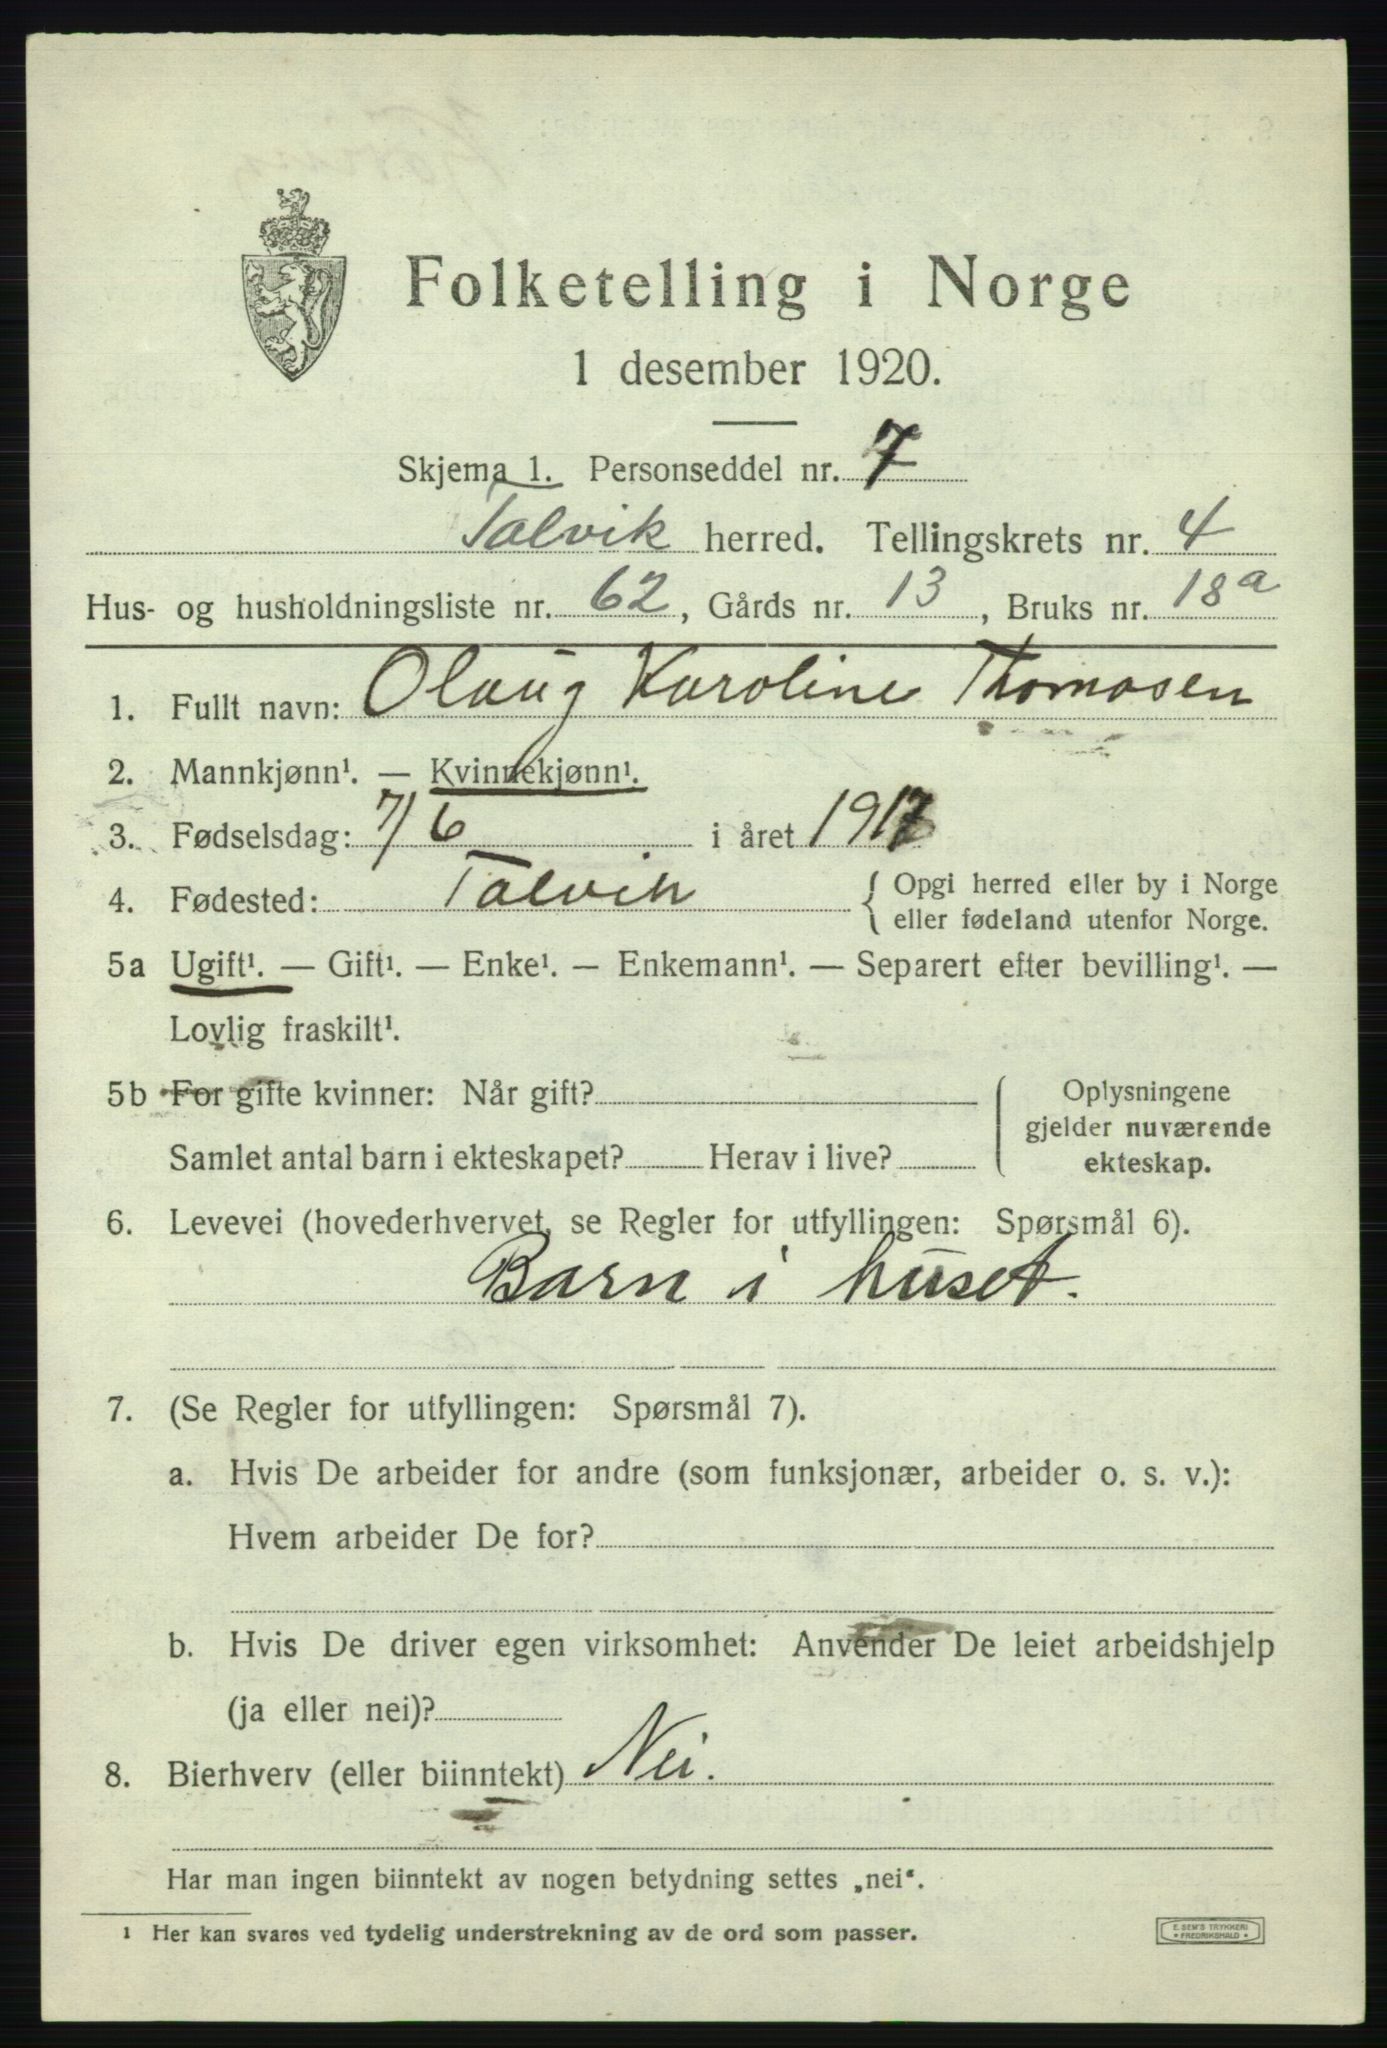 Folketelling i Norge
1 desember 1920.
Skjema 1. Personseddel nr. 7
Talvik herred. Tellingskrets nr. 4
Hus- og husholdningsliste nr. 62, Gårds nr. 13, Bruks nr. 18a
1. Fullt navn: Olaug Karoline Thomasen
2. Mannkjønn¹. — Kvinnekjønn¹.
3. Fødselsdag: 7/6 i året 1917
4. Fødested: Talvik { Opgi herred eller by i Norge
eller fødeland utenfor Norge.
5a Ugift¹. — Gift¹. — Enke¹. — Enkemann¹. — Separert efter bevilling¹. —
Lovlig fraskilt¹.
5b For gifte kvinner: Når gift?
Samlet antal barn i ekteskapet? Herav i live?
Oplysningene
gjelder nuværende
ekteskap.
6. Levevei (hovederhvervet, se Regler for utfyllingen: Spørsmål 6).
Barn i huset.
7. (Se Regler for utfyllingen: Spørsmål 7).
a. Hvis De arbeider for andre (som funksjonær, arbeider o. s. v.):
Hvem arbeider De for?
b. Hvis De driver egen virksomhet: Anvender De leiet arbeidshjelp
(ja eller nei)?
8. Bierhverv (eller biinntekt) Nei.
Har man ingen biinntekt av nogen betydning settes „nei“.
¹ Her kan svares ved tydelig understrekning av de ord som passer.
E. SEM'S TRYKKERI
* FREDRIKSHALD *